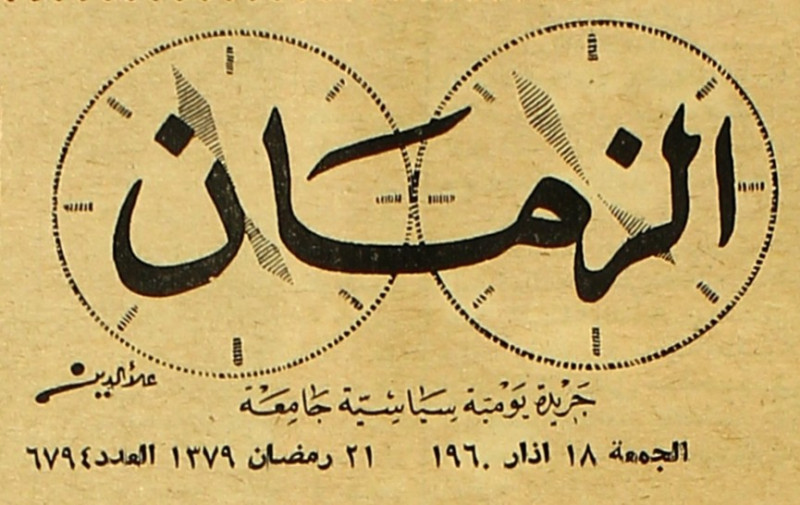 الزمان
علاءالدين
جريدة يومية سياسية جامعة
الجمعة ١٨ اذار ١٩٦٠ ٢١ رمضان ١٣٧٩ العدد ٦٧٩٤